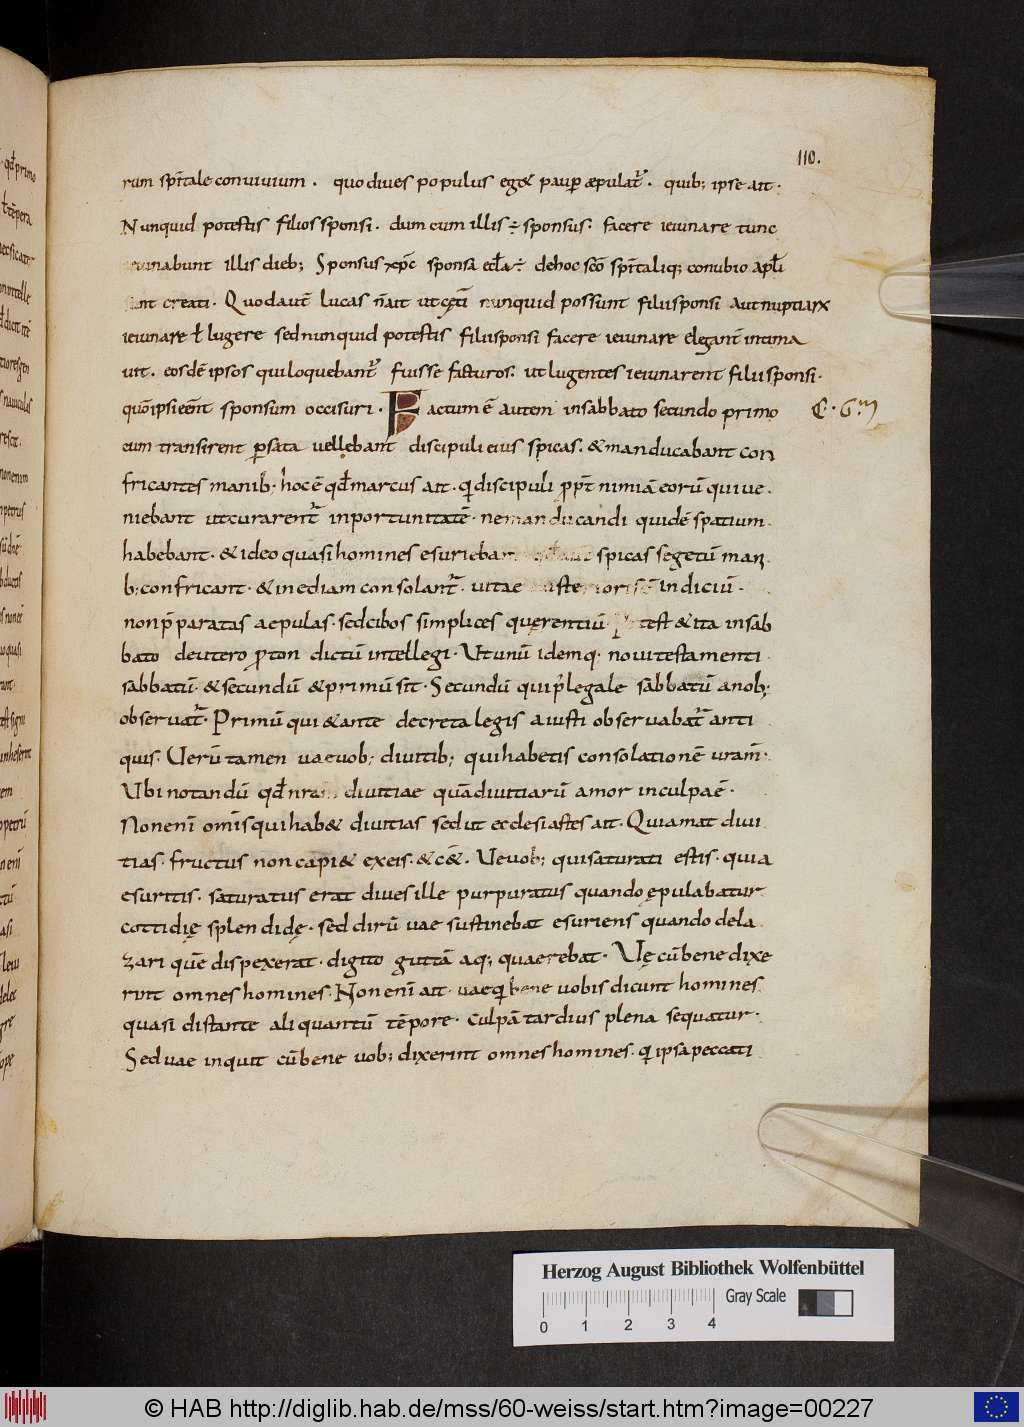 110.
rum spītale conuiuium. quo diues populus eget & paup̄ æpulat̄. quib; ipse ait.
Nunquid potestis filios sponsi. dum cum illis ÷ sponsus. facere ieiunare tunc
ieiunabunt illis dieb; Sponsus xp̄c sponsa eccl̄a ÷ de hoc sc̄o spītaliq; conubio apl̄i
sunt creati. Quod aut̄ lucas n̄ ait ut cęt̄i nunquid possunt filii sponsi aut nuptiarꝝ
ieiunare ł lugere sed nunquid potestis filii sponsi facere ieiunare elegant̄ intima
uit. eosdē ipsos qui loquebant̄ fuisse facturos. ut lugentes ieiunarent filii sponsi.
quō ipsi eēnt sponsum occisuri. Factum ē autem in sabbato secundo primo
C. 6m
cum transirent p̱ sata uellebant discipuli eius spicas. & manducabant con
fricantes manib; hoc ē qđ marcus ait. q̱ discipuli pp̄t nimiā eorū qui ue
niebant ut curarent̄ inportunitatē. nemanducandi quidē spatium
habebant. & ideo quasi homines esuriebant spicas segetū man
b; confricant. & inediam consolant̄. uitae austerioris indiciū.
non p̄paratas aepulas. sed cibos simplices quęrentiū. Potest & ita in sab
bato deutero proton dictū intellegi. Ut unū idemq; noui testamenti
sabbatū. & secundū & primū sit. Secundū qui p̄ legale sabbatū a nob;
obseruat̄. Primū qui & ante decreta legis a iusti obseruabat̄ anti
quis. Uerū tamen uae uob; diuitib; qui habetis consolationē uram̄.
Ubi notandū qđ n̄ diuitiae quā diuitiarū amor in culpa ē.
Non enī omīs qui hab& diuitias sed ut ecclesiastes ait. Qui amat diui
tias. fructus non capi& ex eis. & c&̄. Ue uob; qui saturati estis. quia
esuritis. saturatus erat diues ille purpuratus quando ępulabatur
cottidię splendidę. sed dirū uae sustinebat esuriens quando de la
zari quē dispexerat. digito guttā aq; quaerebat. Uę cū bene dixe
rint omnes homines. Non enī ait. uae q̱ bene uobis dicunt homines
quasi distante aliquantū tēpore. culpā tardius plena sequatur.
Sed uae inquit cū bene uob; dixerint omnes homines. q̱ ipsa peccati
Herzog August Bibliothek Wolfenbüttel
Gray Scale
0 1 2 3 4
© HAB http://diglib.hab.de/mss/60-weiss/start.htm?image=00227